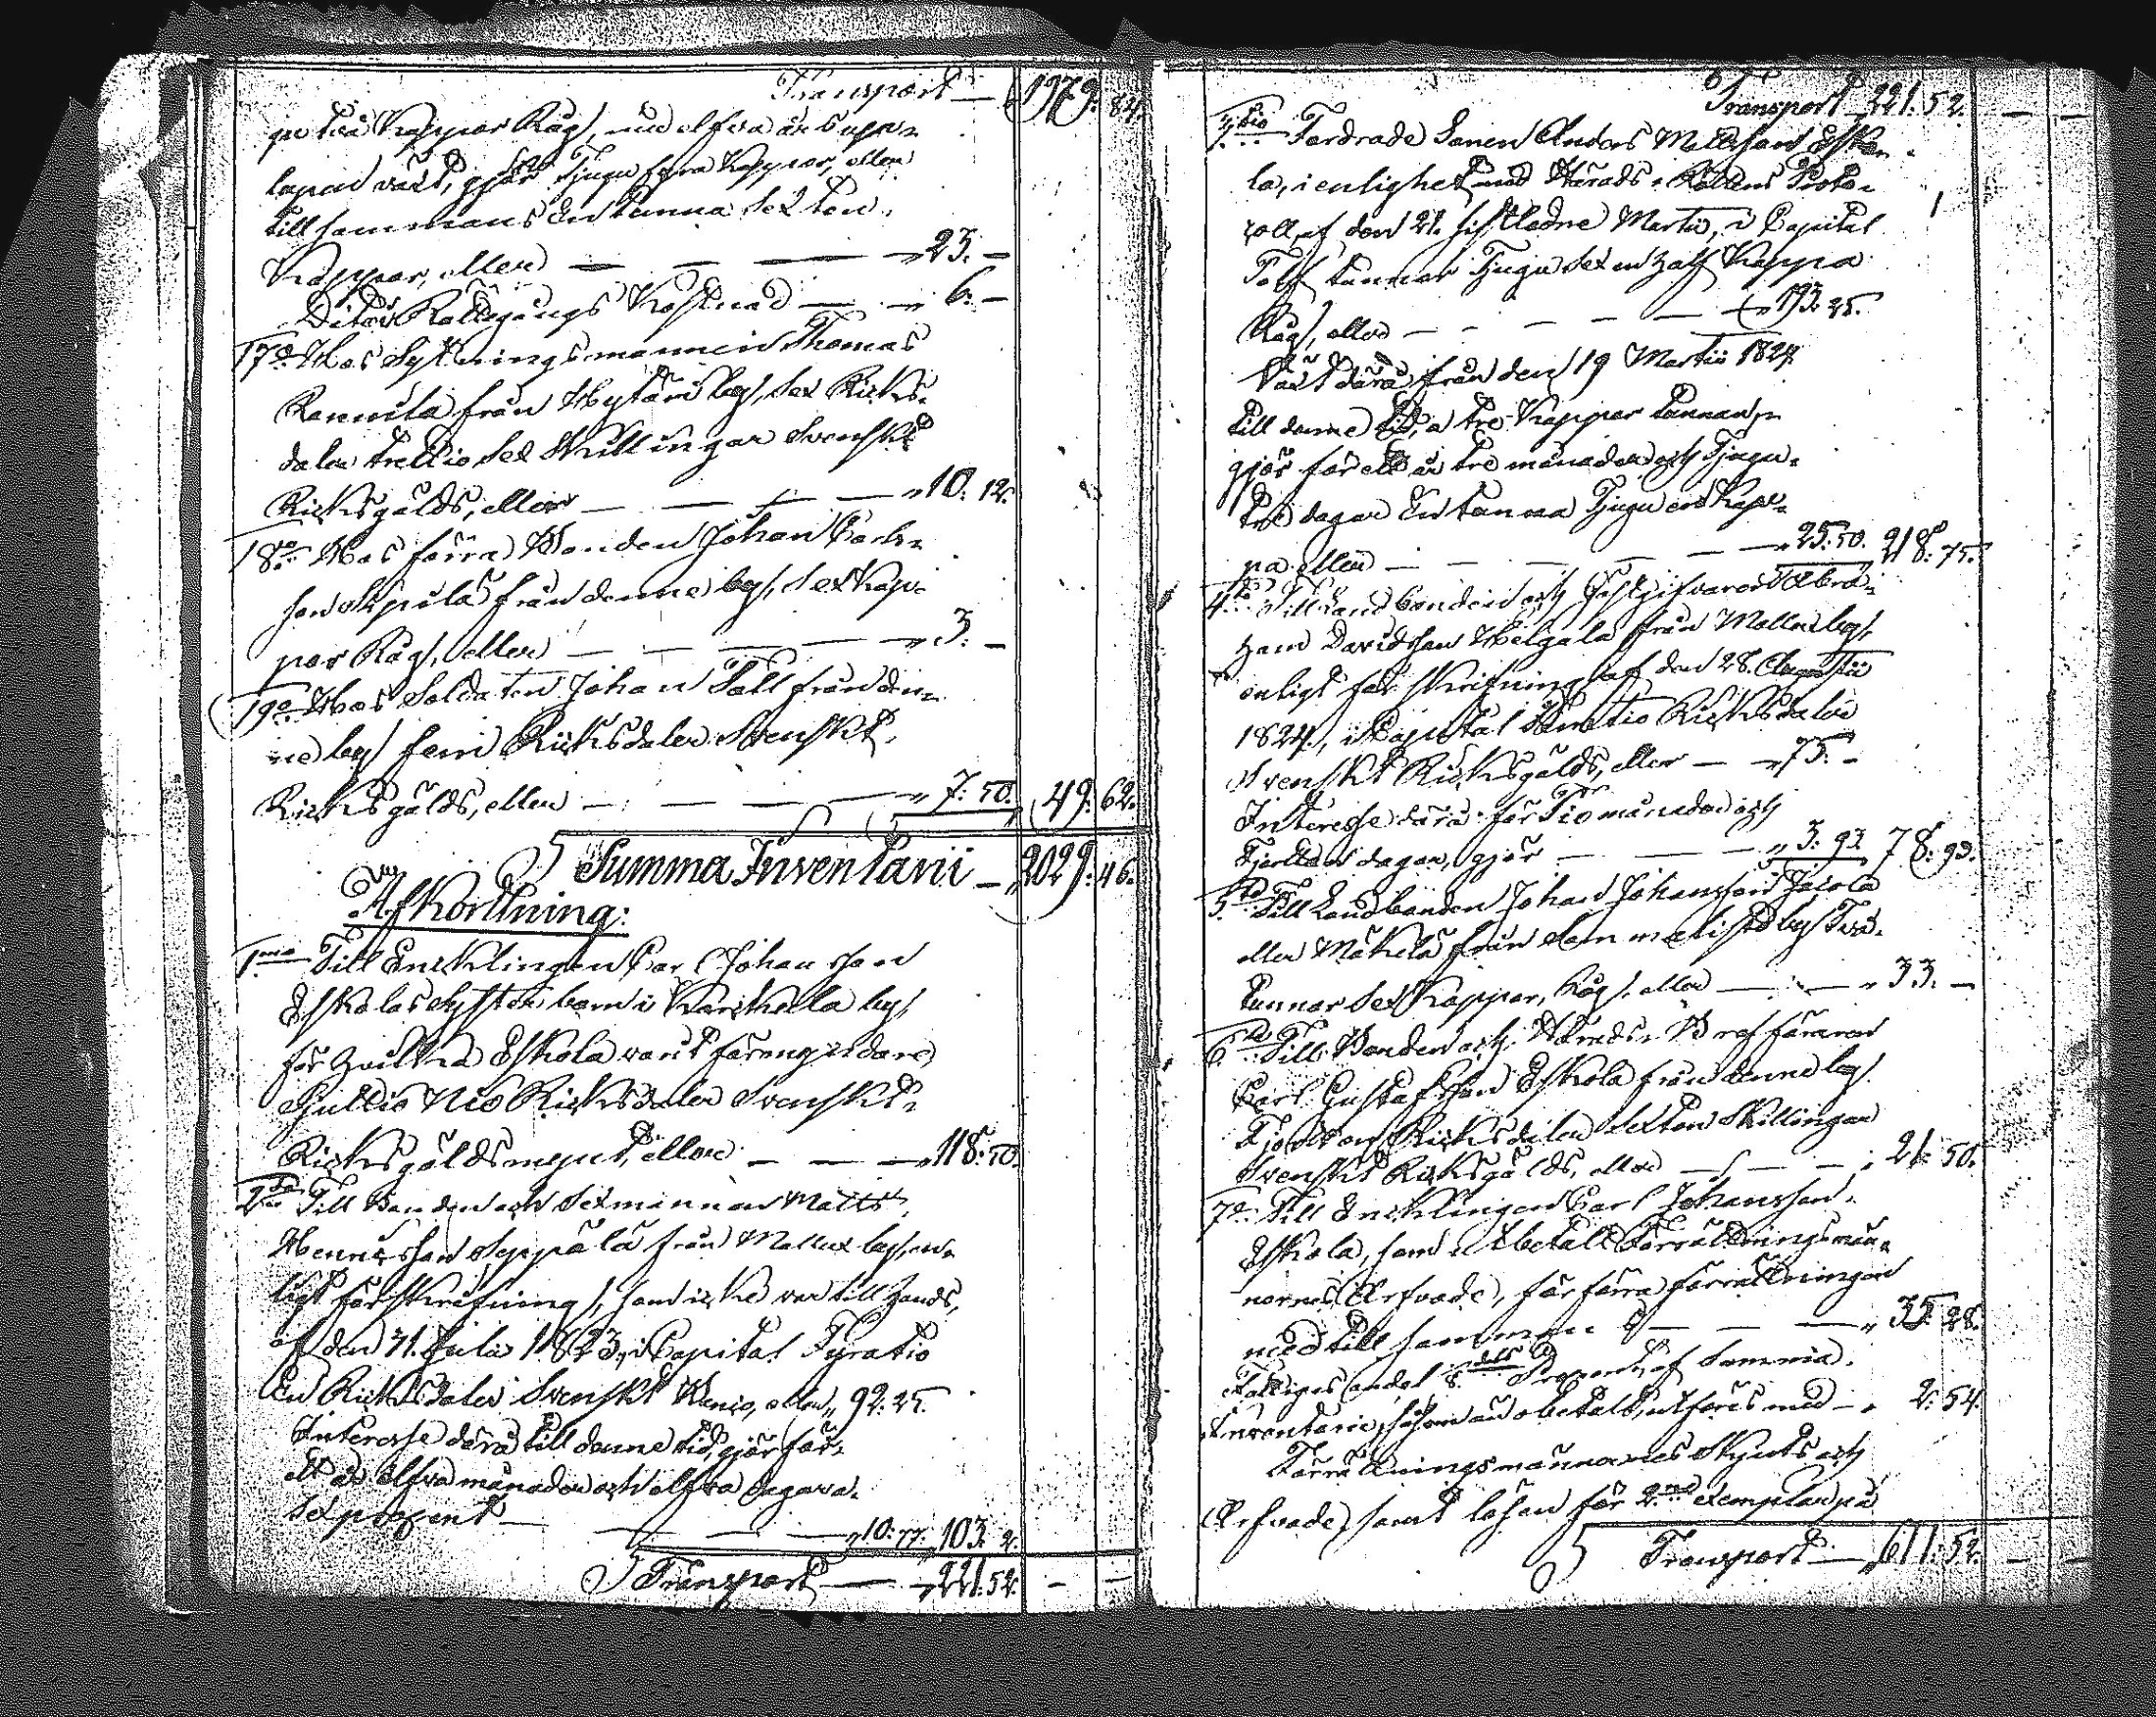 Transport — 1979: 84.
ge två Kappar Råg, med elfva års upp-
lupen växt, gjör Tjugu fyra Kappar, eller
tillsammans En tunna Sexton
Kappar, eller — — — " 23. —
Ditas Rättegångs Kostnad — — " 6. —
17o Hos Sytningsmannen Thomas
Rannila från Hytäm by, Sex Riks-
daler trettio Sex Skillingar Svenskt
Riksgälds, eller — — — — " 10. 12.
18o Hos förra Bonden Johan Carls-
son Äpilä från denne by, Sex Kap-
par Råg, eller — — — — " 3. —
19o Hos Soldaten Johan Päll från den-
ne by fem Riksdaler Svenskt
Riksgälds, eller — — — — " 7: 50. 49: 62.
Summa Inventarii — " 2029: 46.
Afkortning:
1mo Till Enklingen Carl Johansson
Eskolas Systerbarn i Karikella by,
för hvilka Eskola varit förmyndare
Sjuttio Nio Riksdaler Svenskt
Riksgäldsmynt, eller — — — " 118: 50.
2do Till Bonden och Sexmannen Matts
Henricsson Seppälä från Mallux by, en-
ligt förskrifning, som icke var till hands,
af den 31. Julii 1823, i Capital Fyratio
En Riksdaler Svenskt Banco, eller " 92: 25.
Interesse därå till denne tid, gjör för
ett år elfva månader och elfva dagar a
sex procent — — — " 10: 77. 103. 2.
Transport — " 221: 52. — —
Transport " 221: 52. — —
3tio Fordrade Sonen Anders Mattsson Esko-
la, i enlighet med Härads-Rättens Proto-
coll, af den 21. sistledne Martii, i Capital
Tolf tunnor Tjugu Sex en half Kappa
Råg, eller — — — — — " 193: 25.
Växt därå från den 19 Martii 1824
till denne tid, a tre Kappar tunnan,
gjör för ett år tre månader och Tjugu-
tre dagar En tunna Tjugu en Kap-
pa eller — — — — — " 25: 50. 218: 75.
4to Till Landbonden och Gästgifvaren Abra-
ham Davidsson Helgala från Mallux by,
enligt förskrifning af den 28. Augusti
1824, i Capital Femtio Riksdaler
Svenskt Riksgälds, eller — " 75. —
Interesse därå för Tio månader och
Fjorton dagar, gjör — — — " 3: 93. 78: 93.
5to Till Landbonden Johan Johansson Jacola
eller Mäkelä från Sem me lisp by Två
tunnor Sex Kappar, Råg, eller — — " 33. —
6to Till Bonden och Härads-Brefföraren
Carl Gustafsson Eskola från denne by
Fjorton Riksdaler Sexton Skillingar
Svenskt Riksgälds, eller — — — " 21: 50.
7o Till Enklingen Carl Johansson
Eskola, som betalt Förrättningsmän-
nernes Arfvode, för förra förrättningen
med tillsamman — — — " 35: 28.
Fattiges andel 8dels Procent af Summa
Inventarii, såsom än obetalt, utföres med — " 2: 54.
Förrättningsmännernes Skjuts och
Arfvode, samt lösen för 2ne exemplar på
Transport — " 611: 52. — —